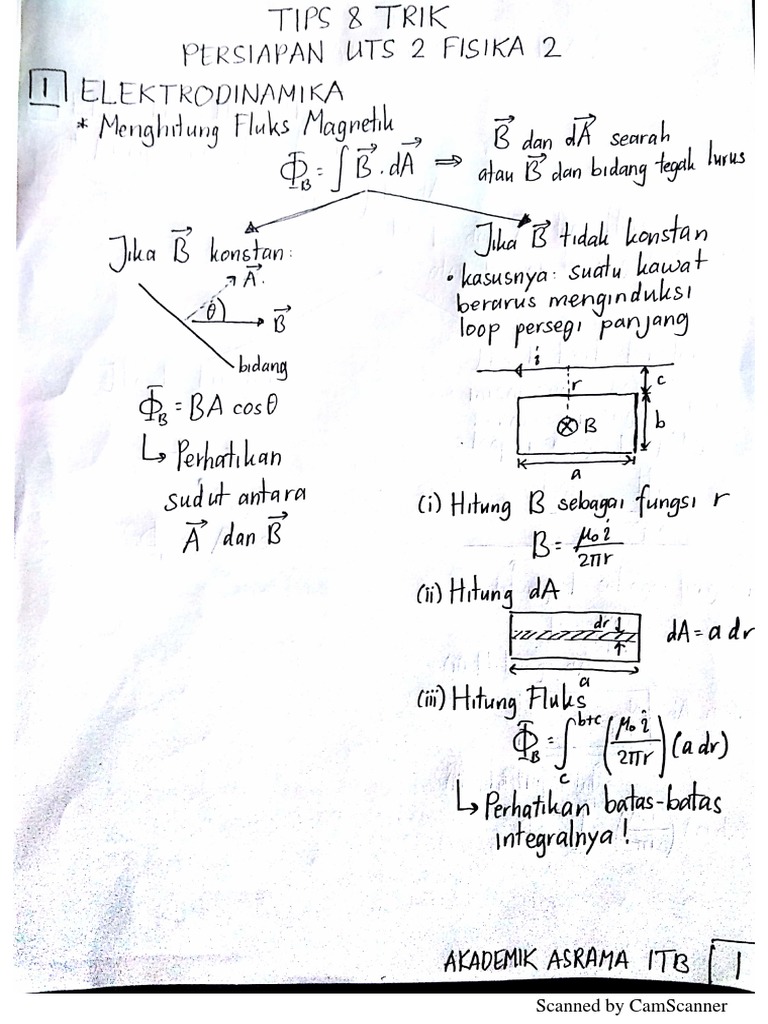 TIPS & TRIK
PERSIAPAN UTS 2 FISIKA 2
1 ELEKTRODINAMIKA
* Menghitung Fluks Magnetik
Φ_B = ∫ B⃗ . dA⃗ ⇒ B⃗ dan dA⃗ searah
atau B⃗ dan bidang tegak lurus
Jika B⃗ konstan:
A⃗.
θ
B⃗
bidang
Φ_B = BA cosθ
↳ Perhatikan
sudut antara
A⃗ dan B⃗
Jika B⃗ tidak konstan
• kasusnya: suatu kawat
berarus menginduksi
loop persegi panjang
i
r
c
⊗ B
b
a
(i) Hitung B sebagai fungsi r
B = μ₀i / 2πr
(ii) Hitung dA
dr
dA = a dr
a
(iii) Hitung Fluks
Φ_B = ∫_c^{b+c} (μ₀i / 2πr) (a dr)
↳ Perhatikan batas-batas
integralnya!
AKADEMIK ASRAMA ITB 1
Scanned by CamScanner